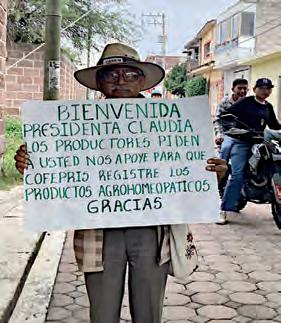 BIENVENIDA
PRESIDENTA CLAUDIA
LOS PRODUCTORES PIDEN
A USTED NOS APOYE PARA QUE
COFEPRIS REGISTRE LOS
PRODUCTOS AGROHOMEOPATICOS
GRACIAS